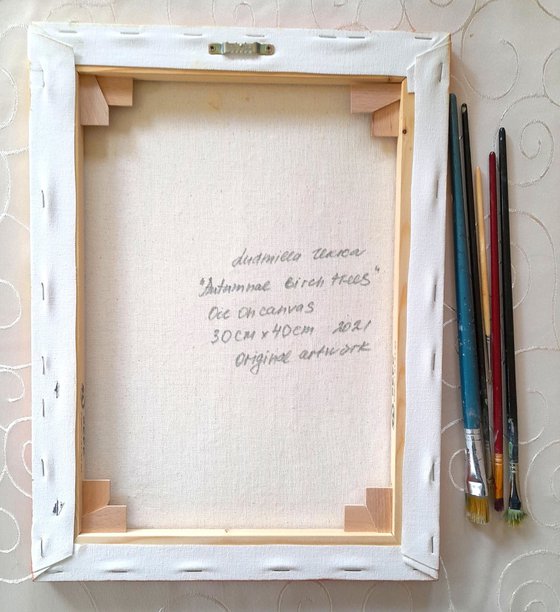 Ludmilla
"Autumnal Birch trees"
Oil on canvas
30cm x 40cm 2021
Original artwork